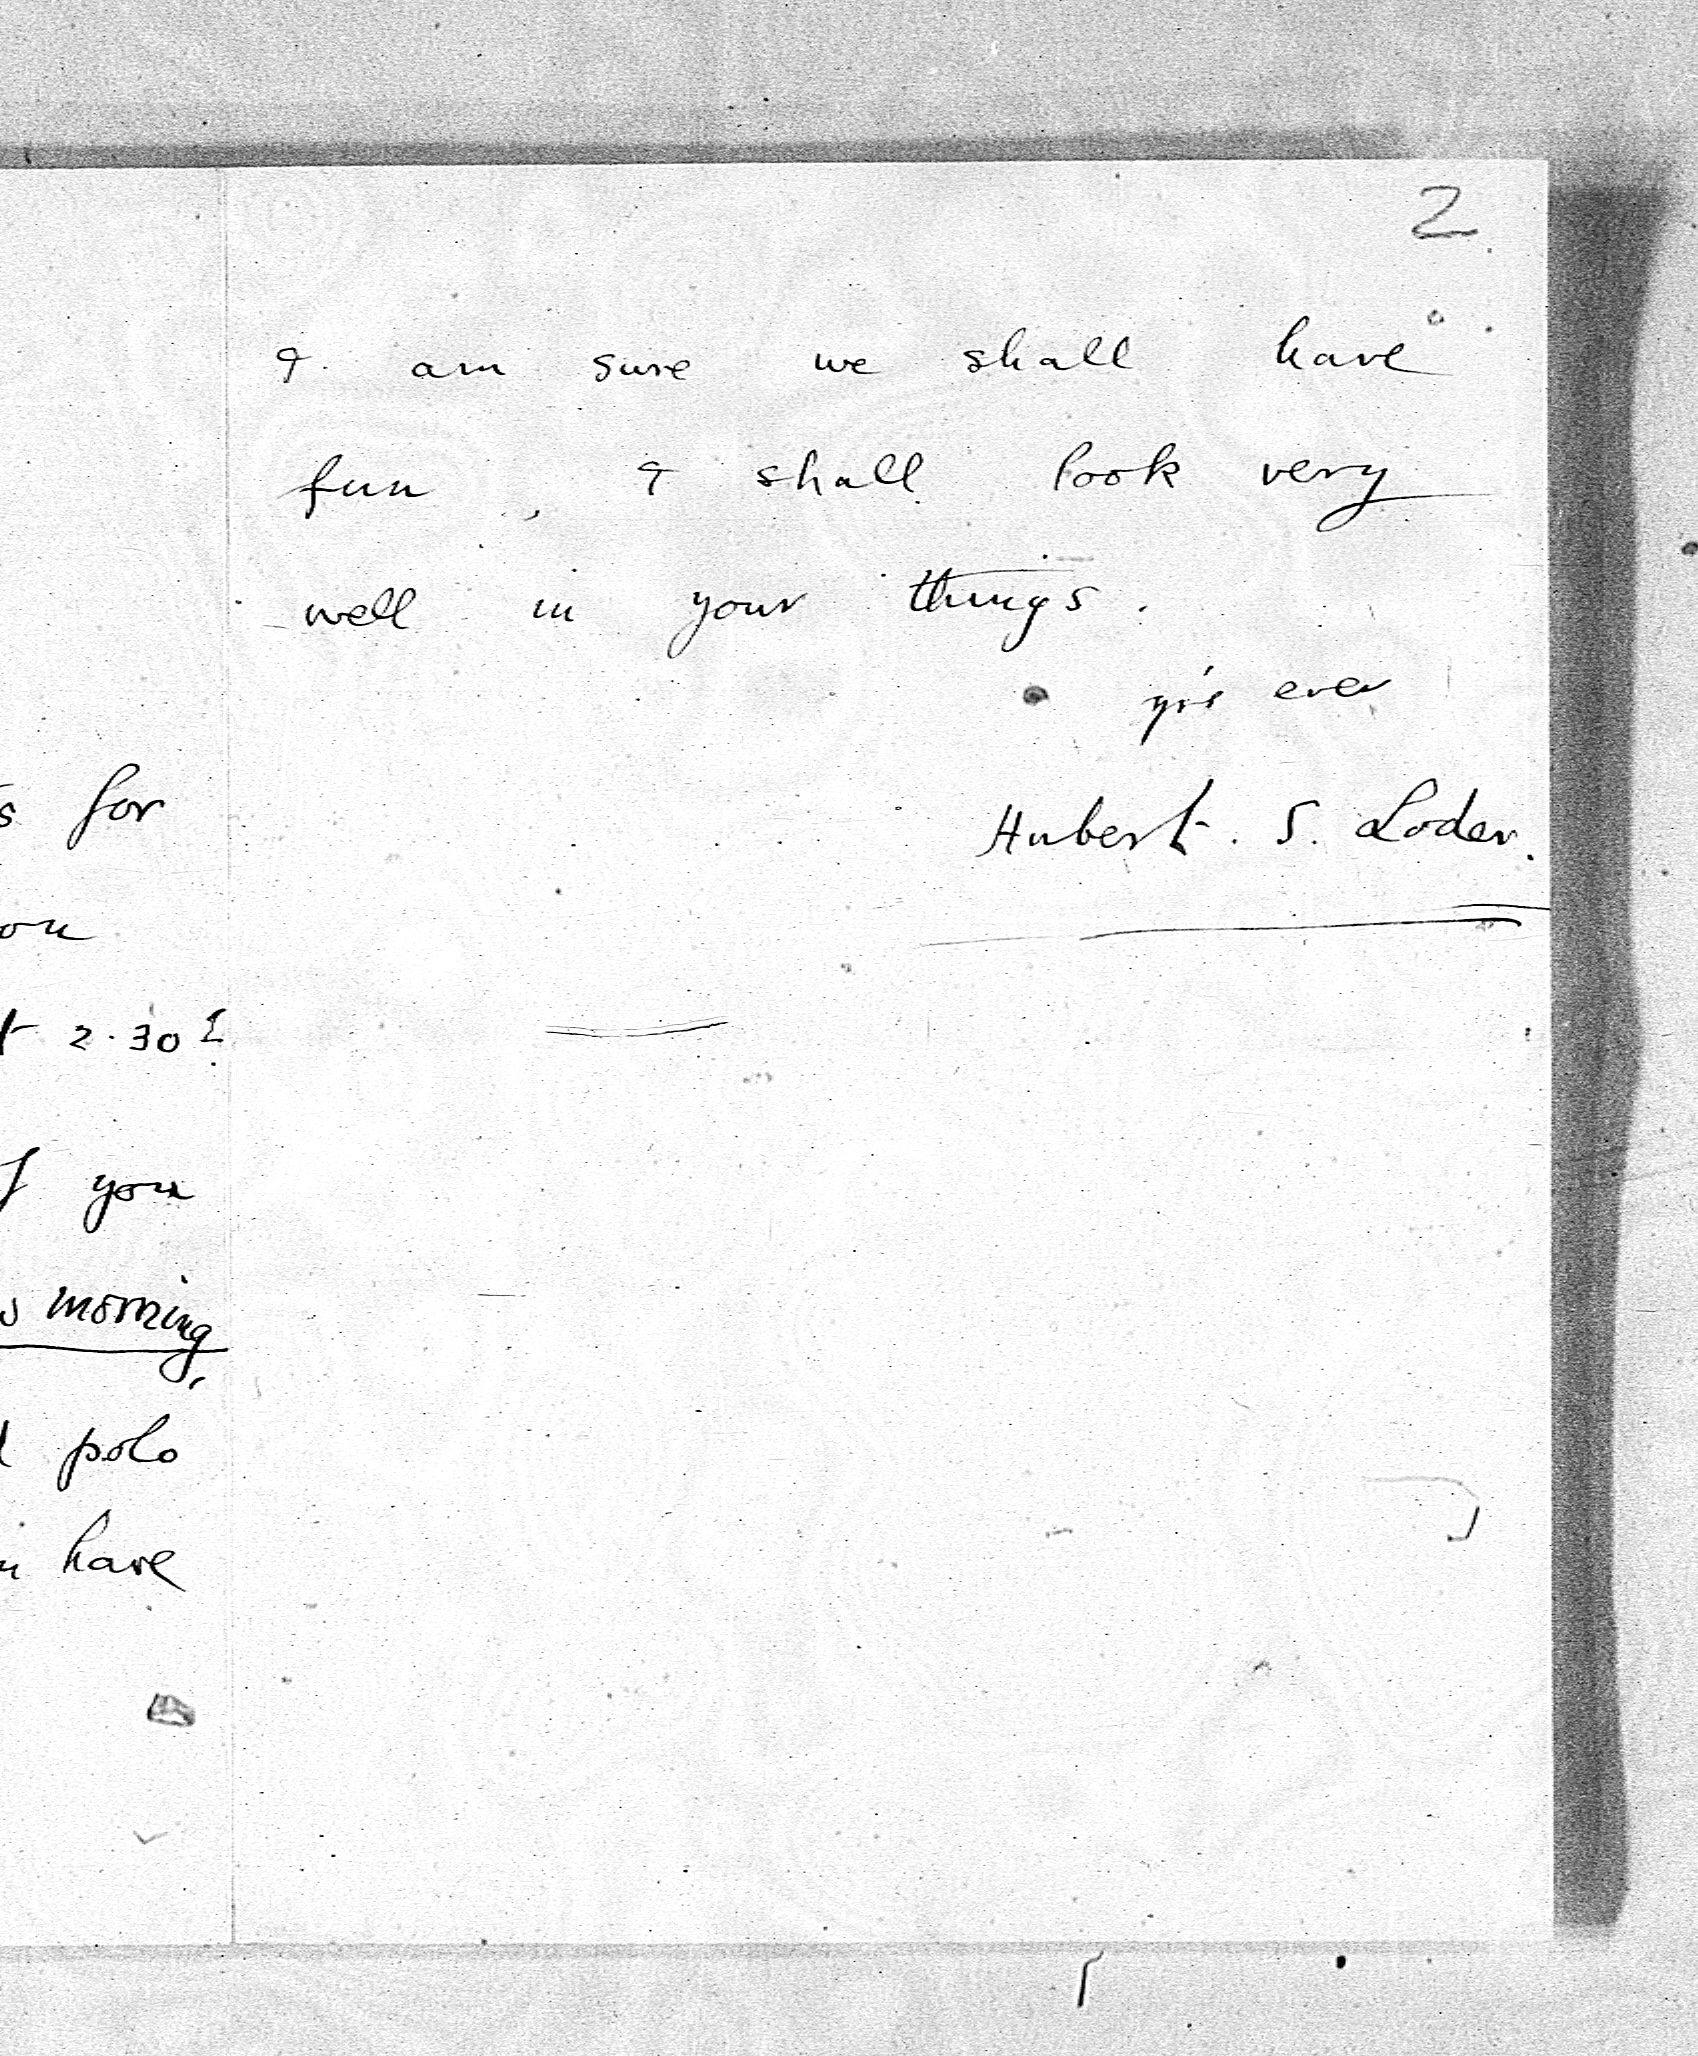 s for
on
t 2.30?
f you
s morning,
d polo
u have
2
& am sure we shall have
fun, & shall look very
well in your things.
yrs ever
Hubert. S. Loder.